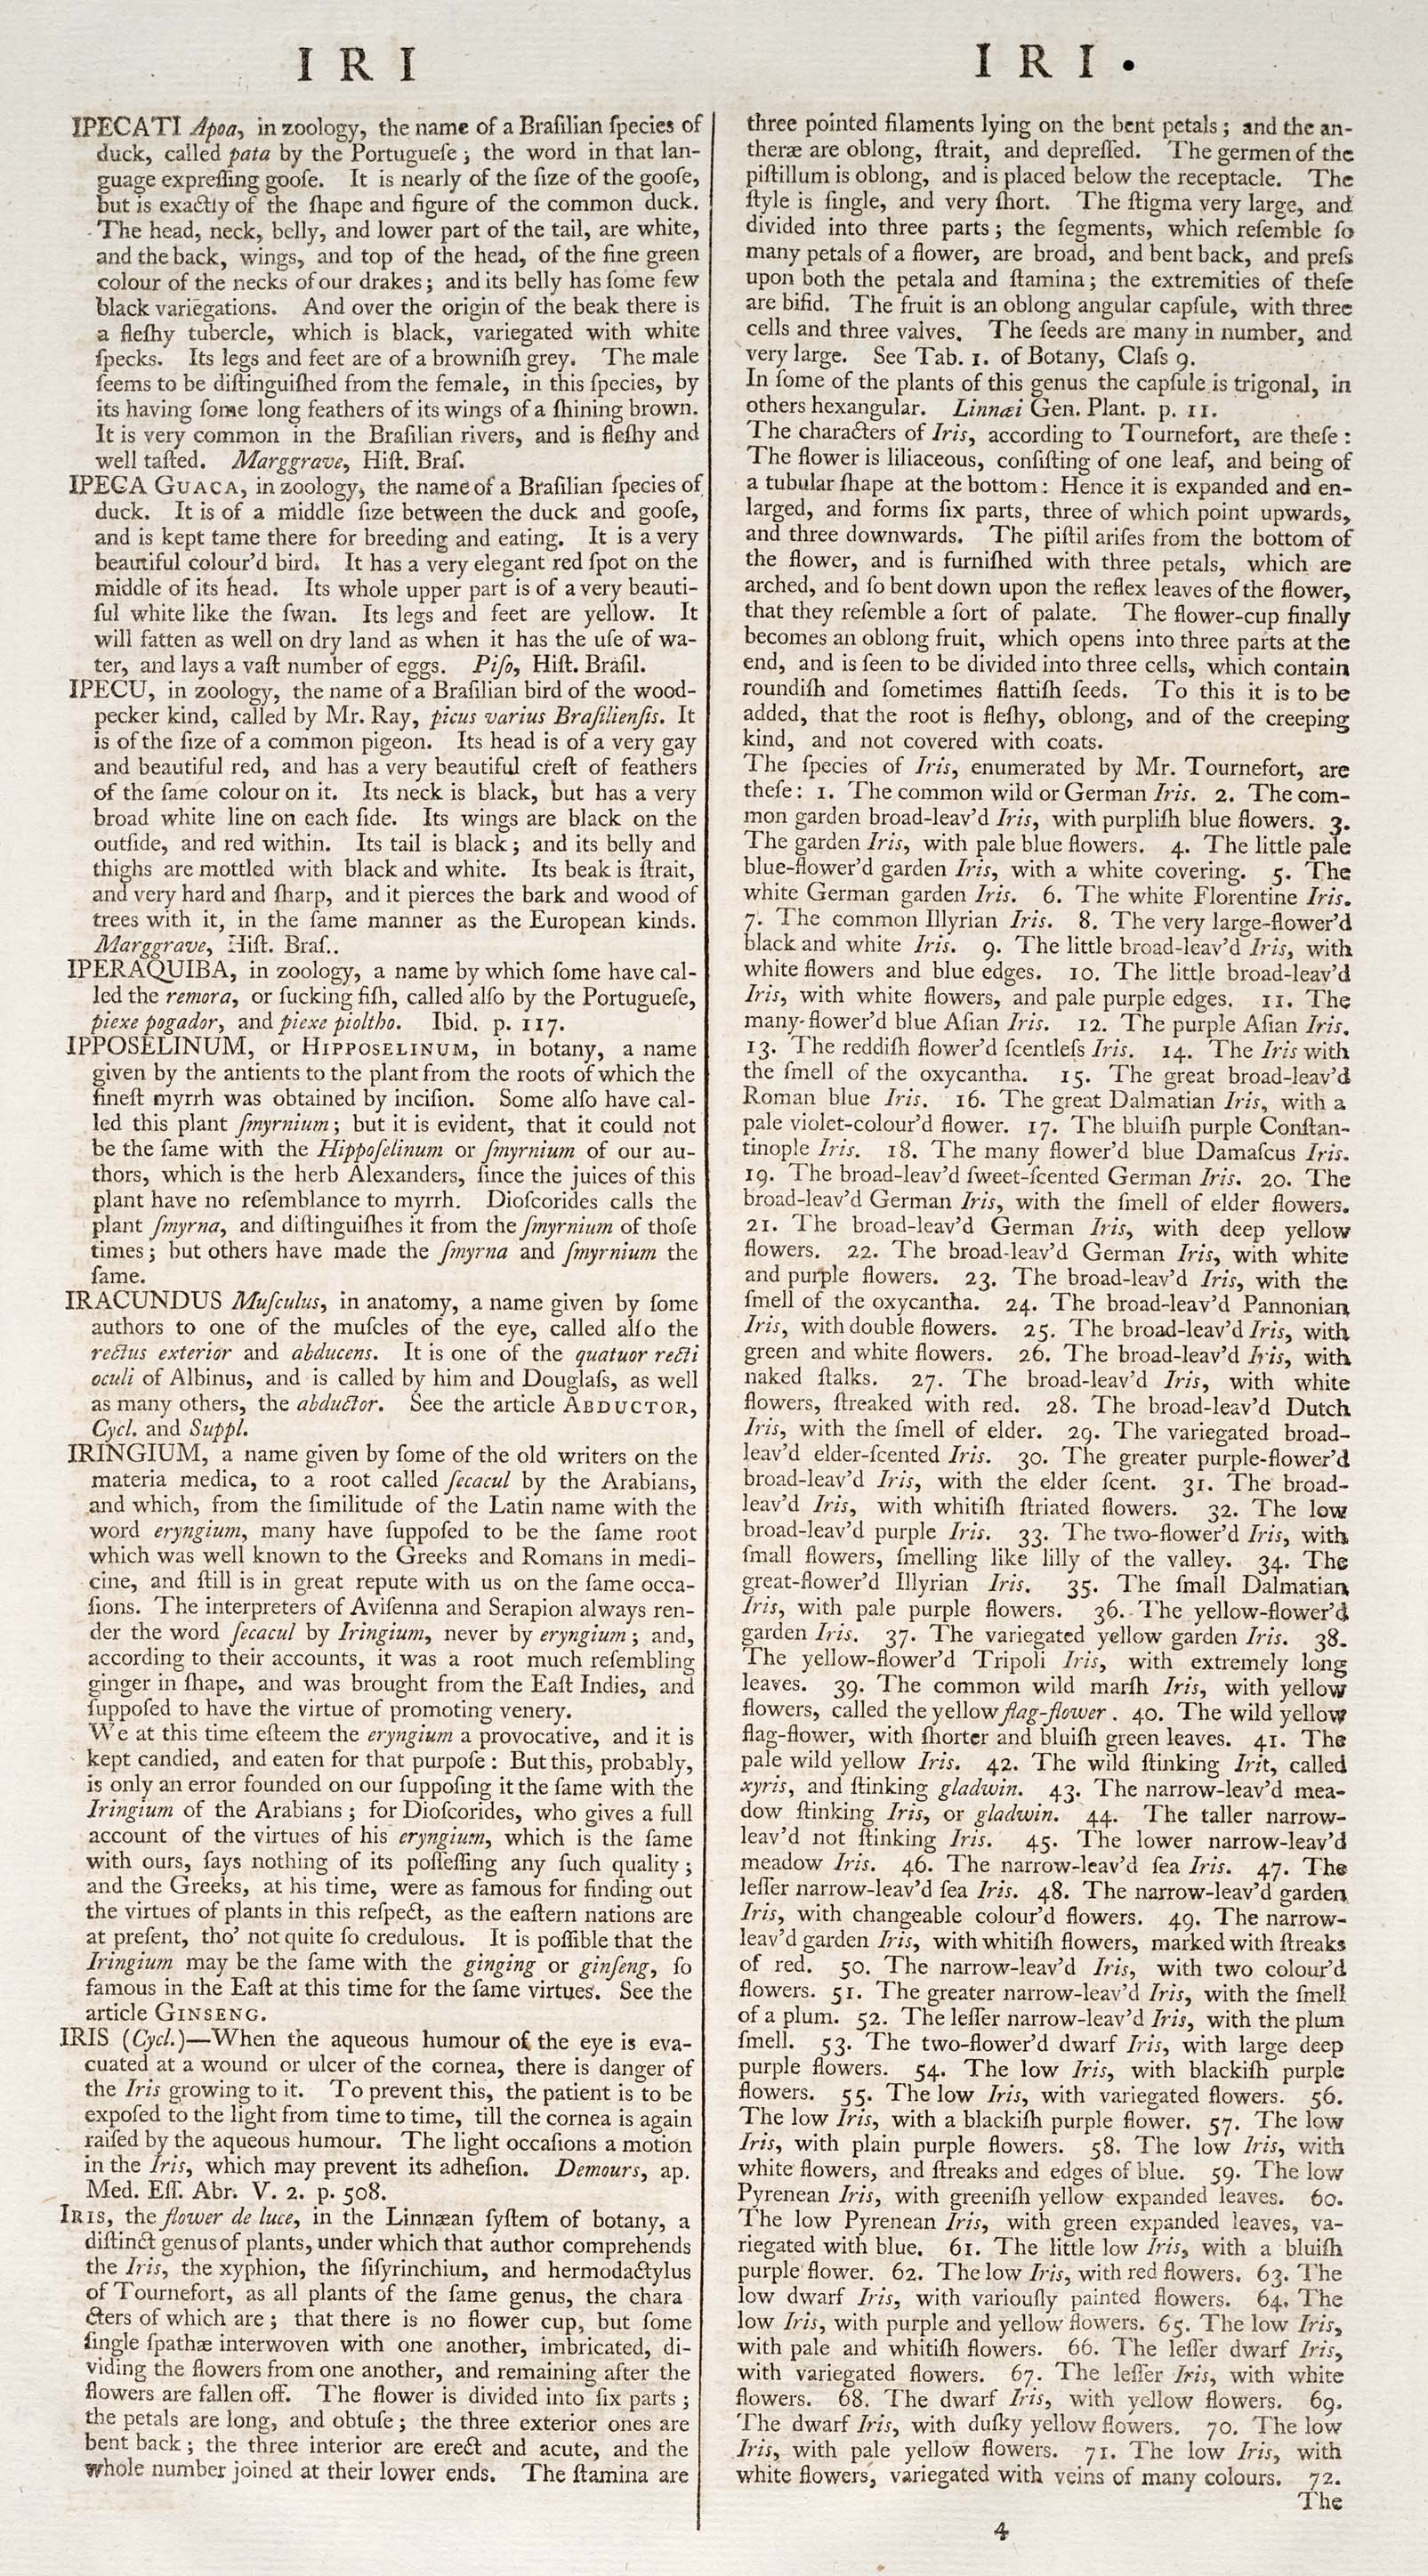 I R I
IPECATI Apoa, in zoology, the name of a Braſilian ſpecies of
duck, called pata by the Portugueſe; the word in that lan-
guage expreſſing gooſe. It is nearly of the ſize of the gooſe,
but is exactly of the ſhape and figure of the common duck.
The head, neck, belly, and lower part of the tail, are white,
and the back, wings, and top of the head, of the fine green
colour of the necks of our drakes; and its belly has ſome few
black variegations. And over the origin of the beak there is
a fleſhy tubercle, which is black, variegated with white
ſpecks. Its legs and feet are of a browniſh grey. The male
ſeems to be diſtinguiſhed from the female, in this ſpecies, by
its having ſome long feathers of its wings of a ſhining brown.
It is very common in the Braſilian rivers, and is fleſhy and
well taſted. Marggrave, Hiſt. Braſ.
IPECA GUACA, in zoology, the name of a Braſilian ſpecies of
duck. It is of a middle ſize between the duck and gooſe,
and is kept tame there for breeding and eating. It is a very
beautiful colour'd bird. It has a very elegant red ſpot on the
middle of its head. Its whole upper part is of a very beauti-
ful white like the ſwan. Its legs and feet are yellow. It
will fatten as well on dry land as when it has the uſe of wa-
ter, and lays a vaſt number of eggs. Piſo, Hiſt. Braſil.
IPECU, in zoology, the name of a Braſilian bird of the wood-
pecker kind, called by Mr. Ray, picus varius Braſilienſis. It
is of the ſize of a common pigeon. Its head is of a very gay
and beautiful red, and has a very beautiful creſt of feathers
of the ſame colour on it. Its neck is black, but has a very
broad white line on each ſide. Its wings are black on the
outſide, and red within. Its tail is black; and its belly and
thighs are mottled with black and white. Its beak is ſtrait,
and very hard and ſharp, and it pierces the bark and wood of
trees with it, in the ſame manner as the European kinds.
Marggrave, Hiſt. Braſ..
IPERAQUIBA, in zoology, a name by which ſome have cal-
led the remora, or ſucking fiſh, called alſo by the Portugueſe,
piexe pogador, and piexe pioltho. Ibid. p. 117.
IPPOSELINUM, or HIPPOSELINUM, in botany, a name
given by the antients to the plant from the roots of which the
fineſt myrrh was obtained by inciſion. Some alſo have cal-
led this plant ſmyrnium; but it is evident, that it could not
be the ſame with the Hippoſelinum or ſmyrnium of our au-
thors, which is the herb Alexanders, ſince the juices of this
plant have no reſemblance to myrrh. Dioſcorides calls the
plant ſmyrna, and diſtinguiſhes it from the ſmyrnium of thoſe
times; but others have made the ſmyrna and ſmyrnium the
ſame.
IRACUNDUS Muſculus, in anatomy, a name given by ſome
authors to one of the muſcles of the eye, called alſo the
rectus exterior and abducens. It is one of the quatuor recti
oculi of Albinus, and is called by him and Douglaſs, as well
as many others, the abductor. See the article ABDUCTOR,
Cycl. and Suppl.
IRINGIUM, a name given by ſome of the old writers on the
materia medica, to a root called ſecacul by the Arabians,
and which, from the ſimilitude of the Latin name with the
word eryngium, many have ſuppoſed to be the ſame root
which was well known to the Greeks and Romans in medi-
cine, and ſtill is in great repute with us on the ſame occa-
ſions. The interpreters of Aviſenna and Serapion always ren-
der the word ſecacul by Iringium, never by eryngium; and,
according to their accounts, it was a root much reſembling
ginger in ſhape, and was brought from the Eaſt Indies, and
ſuppoſed to have the virtue of promoting venery.
We at this time eſteem the eryngium a provocative, and it is
kept candied, and eaten for that purpoſe: But this, probably,
is only an error founded on our ſuppoſing it the ſame with the
Iringium of the Arabians; for Dioſcorides, who gives a full
account of the virtues of his eryngium, which is the ſame
with ours, ſays nothing of its poſſeſſing any ſuch quality;
and the Greeks, at his time, were as famous for finding out
the virtues of plants in this reſpect, as the eaſtern nations are
at preſent, tho' not quite ſo credulous. It is poſſible that the
Iringium may be the ſame with the ginging or ginſeng, ſo
famous in the Eaſt at this time for the ſame virtues. See the
article GINSENG.
IRIS (Cycl.)—When the aqueous humour of the eye is eva-
cuated at a wound or ulcer of the cornea, there is danger of
the Iris growing to it. To prevent this, the patient is to be
expoſed to the light from time to time, till the cornea is again
raiſed by the aqueous humour. The light occaſions a motion
in the Iris, which may prevent its adheſion. Demours, ap.
Med. Eſſ. Abr. V. 2. p. 508.
IRIS, the flower de luce, in the Linnæan ſyſtem of botany, a
diſtinct genus of plants, under which that author comprehends
the Iris, the xyphion, the ſiſyrinchium, and hermodactylus
of Tournefort, as all plants of the ſame genus, the chara
cters of which are; that there is no flower cup, but ſome
ſingle ſpathæ interwoven with one another, imbricated, di-
viding the flowers from one another, and remaining after the
flowers are fallen off. The flower is divided into ſix parts;
the petals are long, and obtuſe; the three exterior ones are
bent back; the three interior are erect and acute, and the
whole number joined at their lower ends. The ſtamina are
I R I .
three pointed filaments lying on the bent petals; and the an-
theræ are oblong, ſtrait, and depreſſed. The germen of the
piſtillum is oblong, and is placed below the receptacle. The
ſtyle is ſingle, and very ſhort. The ſtigma very large, and
divided into three parts; the ſegments, which reſemble ſo
many petals of a flower, are broad, and bent back, and preſs
upon both the petala and ſtamina; the extremities of theſe
are bifid. The fruit is an oblong angular capſule, with three
cells and three valves. The ſeeds are many in number, and
very large. See Tab. 1. of Botany, Claſs 9.
In ſome of the plants of this genus the capſule is trigonal, in
others hexangular. Linnæi Gen. Plant. p. 11.
The characters of Iris, according to Tournefort, are theſe:
The flower is liliaceous, conſiſting of one leaf, and being of
a tubular ſhape at the bottom: Hence it is expanded and en-
larged, and forms ſix parts, three of which point upwards,
and three downwards. The piſtil ariſes from the bottom of
the flower, and is furniſhed with three petals, which are
arched, and ſo bent down upon the reflex leaves of the flower,
that they reſemble a ſort of palate. The flower-cup finally
becomes an oblong fruit, which opens into three parts at the
end, and is ſeen to be divided into three cells, which contain
roundiſh and ſometimes flattiſh ſeeds. To this it is to be
added, that the root is fleſhy, oblong, and of the creeping
kind, and not covered with coats.
The ſpecies of Iris, enumerated by Mr. Tournefort, are
theſe: 1. The common wild or German Iris. 2. The com-
mon garden broad-leav'd Iris, with purpliſh blue flowers. 3.
The garden Iris, with pale blue flowers. 4. The little pale
blue-flower'd garden Iris, with a white covering. 5. The
white German garden Iris. 6. The white Florentine Iris.
7. The common Illyrian Iris. 8. The very large-flower'd
black and white Iris. 9. The little broad-leav'd Iris, with
white flowers and blue edges. 10. The little broad-leav'd
Iris, with white flowers, and pale purple edges. 11. The
many-flower'd blue Aſian Iris. 12. The purple Aſian Iris.
13. The reddiſh flower'd ſcentleſs Iris. 14. The Iris with
the ſmell of the oxycantha. 15. The great broad-leav'd
Roman blue Iris. 16. The great Dalmatian Iris, with a
pale violet-colour'd flower. 17. The bluiſh purple Conſtan-
tinople Iris. 18. The many flower'd blue Damaſcus Iris.
19. The broad-leav'd ſweet-ſcented German Iris. 20. The
broad-leav'd German Iris, with the ſmell of elder flowers.
21. The broad-leav'd German Iris, with deep yellow
flowers. 22. The broad-leav'd German Iris, with white
and purple flowers. 23. The broad-leav'd Iris, with the
ſmell of the oxycantha. 24. The broad-leav'd Pannonian
Iris, with double flowers. 25. The broad-leav'd Iris, with
green and white flowers. 26. The broad-leav'd Iris, with
naked ſtalks. 27. The broad-leav'd Iris, with white
flowers, ſtreaked with red. 28. The broad-leav'd Dutch
Iris, with the ſmell of elder. 29. The variegated broad-
leav'd elder-ſcented Iris. 30. The greater purple-flower'd
broad-leav'd Iris, with the elder ſcent. 31. The broad-
leav'd Iris, with whitiſh ſtriated flowers. 32. The low
broad-leav'd purple Iris. 33. The two-flower'd Iris, with
ſmall flowers, ſmelling like lilly of the valley. 34. The
great-flower'd Illyrian Iris. 35. The ſmall Dalmatian
Iris, with pale purple flowers. 36. The yellow-flower'd
garden Iris. 37. The variegated yellow garden Iris. 38.
The yellow-flower'd Tripoli Iris, with extremely long
leaves. 39. The common wild marſh Iris, with yellow
flowers, called the yellow flag-flower. 40. The wild yellow
flag-flower, with ſhorter and bluiſh green leaves. 41. The
pale wild yellow Iris. 42. The wild ſtinking Irit, called
xyris, and ſtinking gladwin. 43. The narrow-leav'd mea-
dow ſtinking Iris, or gladwin. 44. The taller narrow-
leav'd not ſtinking Iris. 45. The lower narrow-leav'd
meadow Iris. 46. The narrow-leav'd ſea Iris. 47. The
leſſer narrow-leav'd ſea Iris. 48. The narrow-leav'd garden
Iris, with changeable colour'd flowers. 49. The narrow-
leav'd garden Iris, with whitiſh flowers, marked with ſtreaks
of red. 50. The narrow-leav'd Iris, with two colour'd
flowers. 51. The greater narrow-leav'd Iris, with the ſmell
of a plum. 52. The leſſer narrow-leav'd Iris, with the plum
ſmell. 53. The two-flower'd dwarf Iris, with large deep
purple flowers. 54. The low Iris, with blackiſh purple
flowers. 55. The low Iris, with variegated flowers. 56.
The low Iris, with a blackiſh purple flower. 57. The low
Iris, with plain purple flowers. 58. The low Iris, with
white flowers, and ſtreaks and edges of blue. 59. The low
Pyrenean Iris, with greeniſh yellow expanded leaves. 60.
The low Pyrenean Iris, with green expanded leaves, va-
riegated with blue. 61. The little low Iris, with a bluiſh
purple flower. 62. The low Iris, with red flowers. 63. The
low dwarf Iris, with variouſly painted flowers. 64. The
low Iris, with purple and yellow flowers. 65. The low Iris,
with pale and whitiſh flowers. 66. The leſſer dwarf Iris,
with variegated flowers. 67. The leſſer Iris, with white
flowers. 68. The dwarf Iris, with yellow flowers. 69.
The dwarf Iris, with duſky yellow flowers. 70. The low
Iris, with pale yellow flowers. 71. The low Iris, with
white flowers, variegated with veins of many colours. 72.
The
4